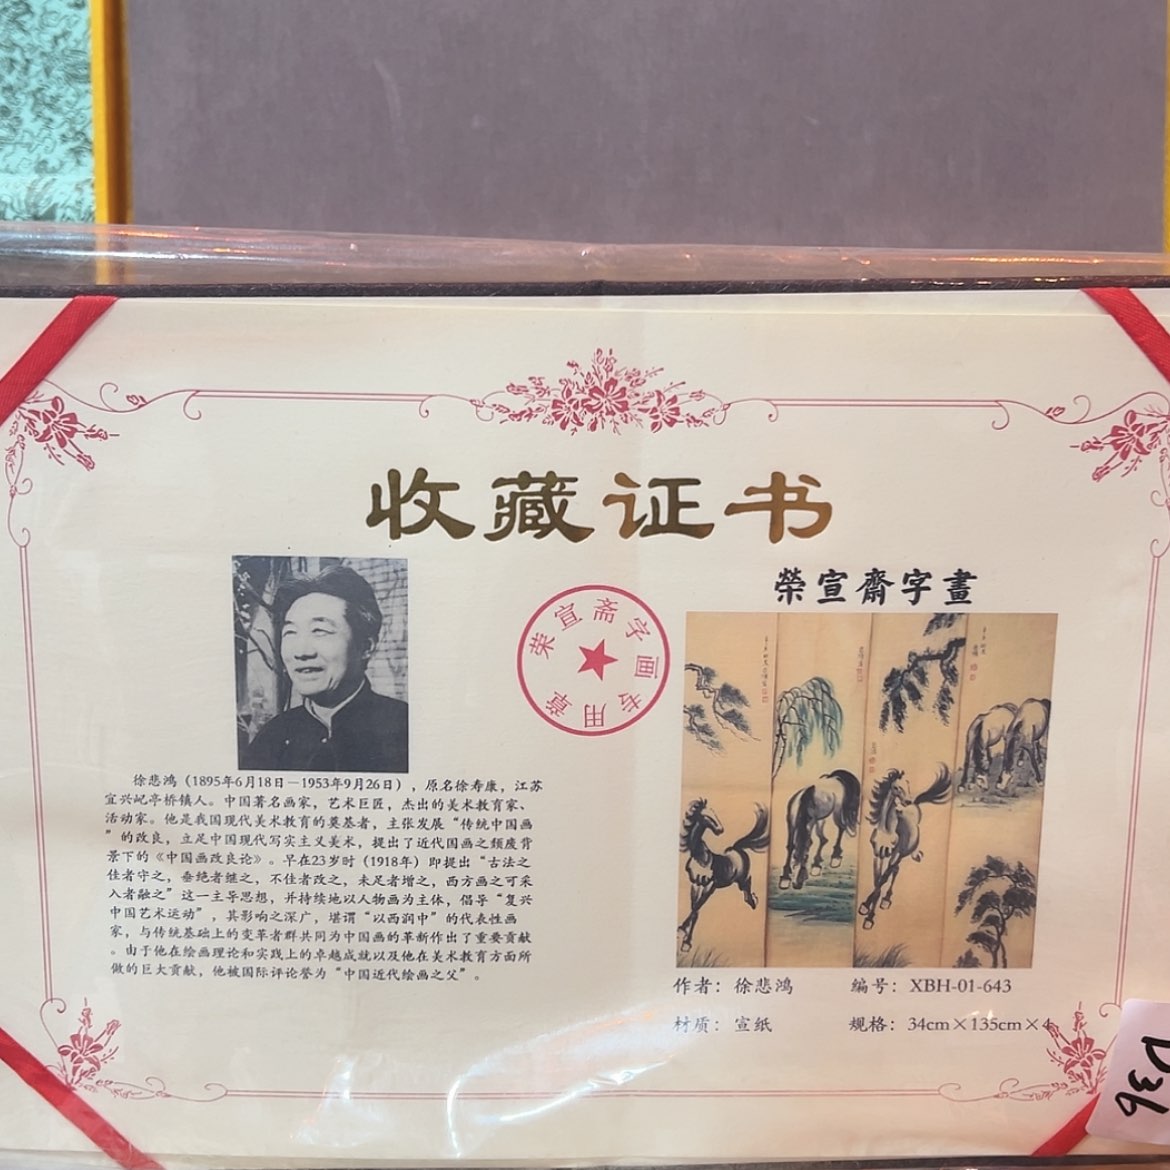 收藏证书
榮宣齋字畫
荣宣斋字画专用章
徐悲鸿（1895年6月18日－1953年9月26日），原名徐寿康，江苏
宜兴屺亭桥镇人。中国著名画家，艺术巨匠，杰出的美术教育家、
活动家。他是我国现代美术教育的奠基者，主张发展“传统中国画
”的改良，立足中国现代写实主义美术，提出了近代国画之颓废背
景下的《中国画改良论》。早在23岁时（1918年）即提出“古法之
佳者守之，垂绝者继之，不佳者改之，未足者增之，西方画之可采
入者融之”这一主导思想，并持续地以人物画为主体，倡导“复兴
中国艺术运动”，其影响之深广，堪谓“以西润中”的代表性画
家，与传统基础上的变革者群共同为中国画的革新作出了重要贡献
。由于他在绘画理论和实践上的卓越成就以及他在美术教育方面所
做的巨大贡献，他被国际评论誉为“中国近代绘画之父”。
作者：徐悲鸿 编号：XBH-01-643
材质：宣纸 规格：34cm×135cm×4